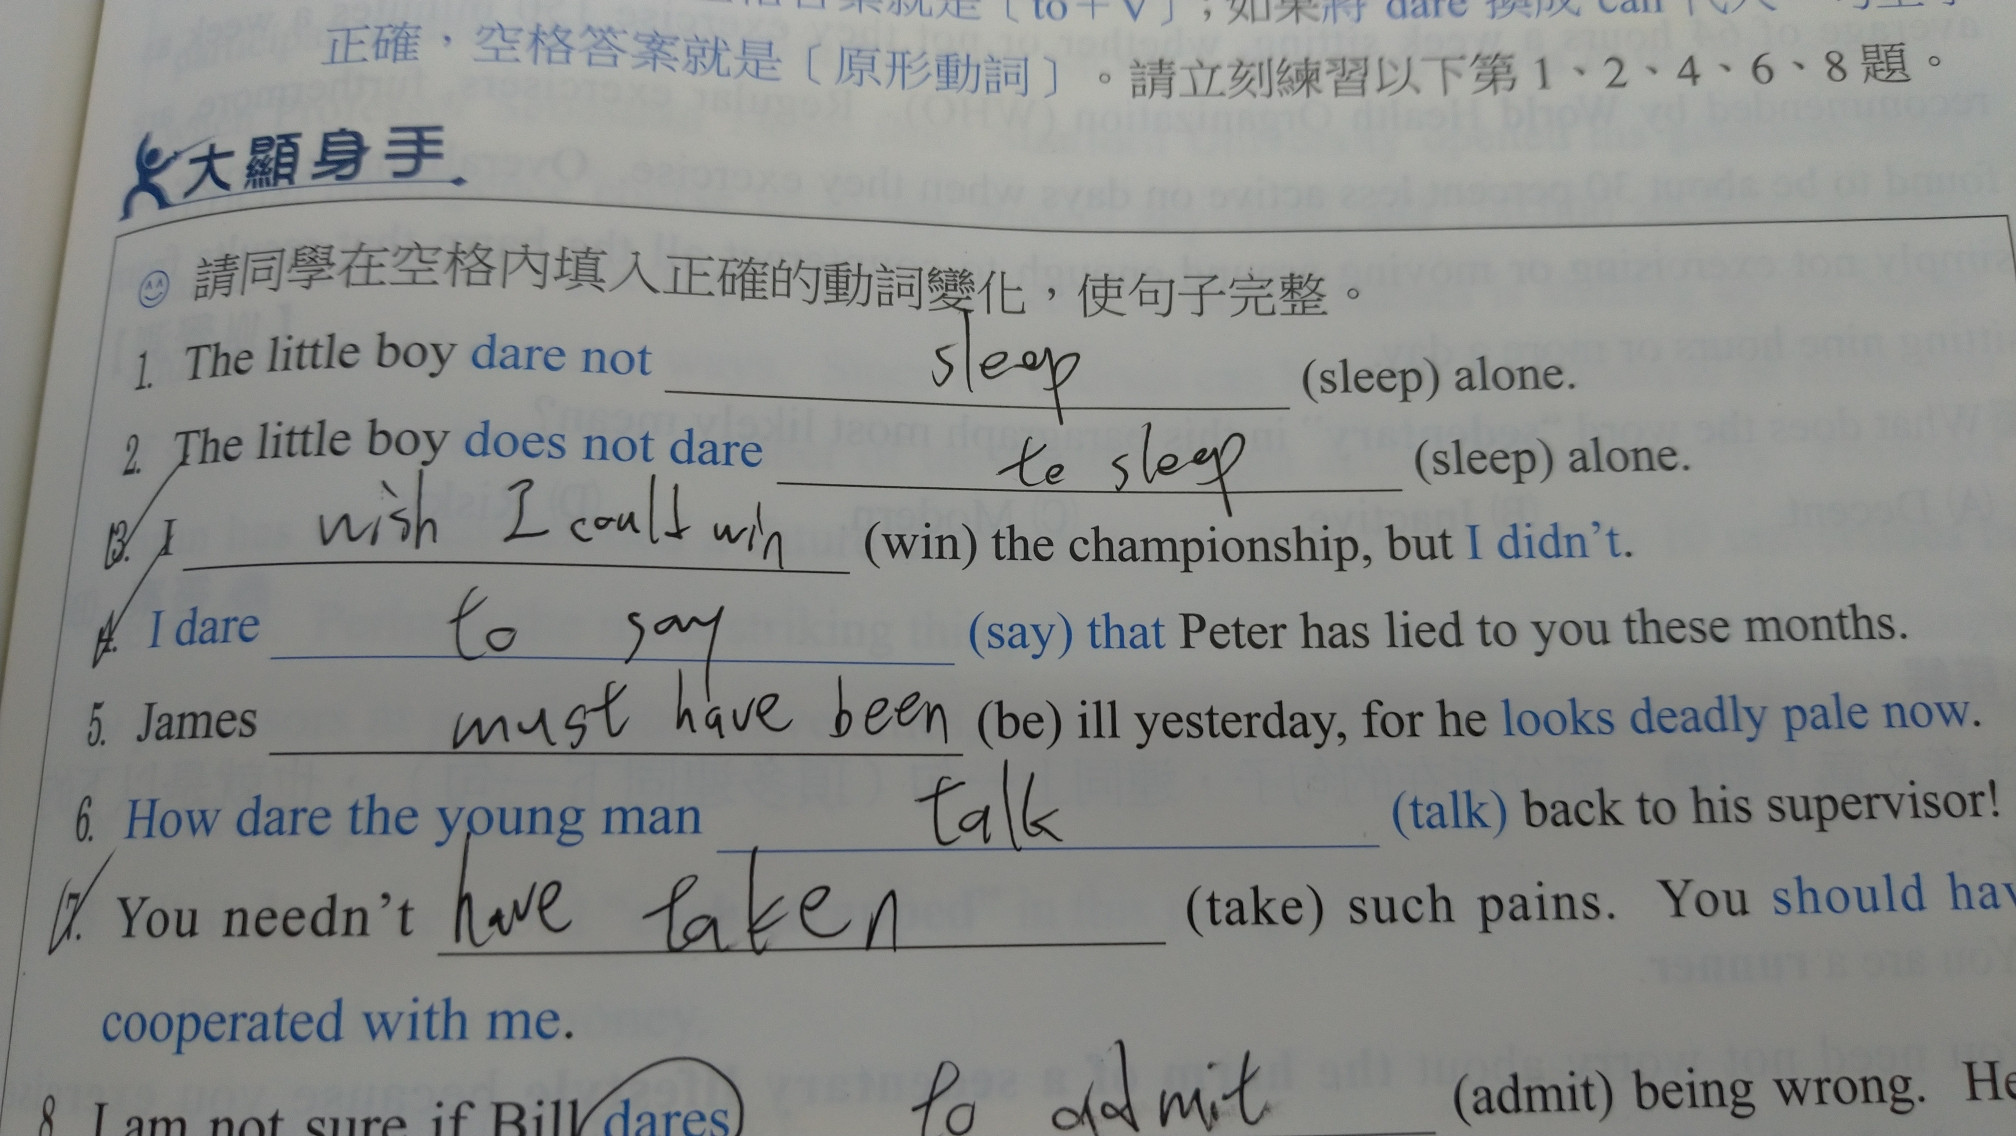 正確，空格答案就是〔原形動詞〕。請立刻練習以下第 1、2、4、6、8 題。
大顯身手
請同學在空格內填入正確的動詞變化，使句子完整。
1. The little boy dare not sleep (sleep) alone.
2. The little boy does not dare to sleep (sleep) alone.
3. I wish I could win (win) the championship, but I didn't.
4. I dare to say (say) that Peter has lied to you these months.
5. James must have been (be) ill yesterday, for he looks deadly pale now.
6. How dare the young man talk (talk) back to his supervisor!
7. You needn't have taken (take) such pains. You should hav
cooperated with me.
8 I am not sure if Bill dares to admit (admit) being wrong. He